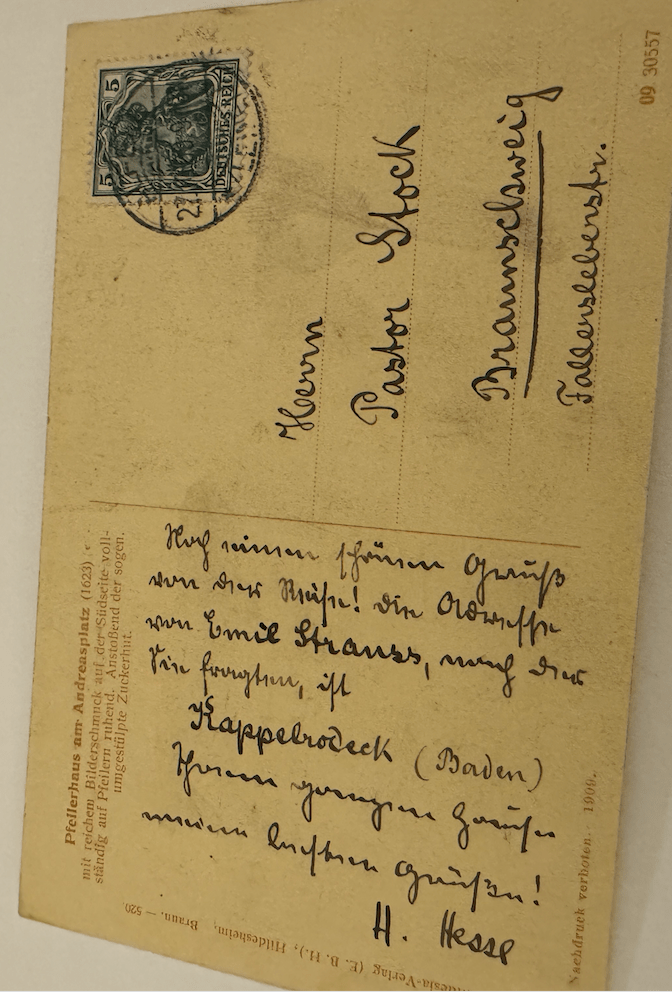 Pfeilerhaus am Andreasplatz (1623)
mit reichem Bilderschmuck auf der Südseite voll-
ständig auf Pfeilern ruhend. Anstoßend der sogen.
umgestülpte Zuckerhut.
Noch einen schönen Gruß
von der Reise! Die Adresse
von Emil Strauss, nach der
Sie fragten, ist
Kappelrodeck (Baden)
Ihrem ganzen Hause
meine besten Grüße!
H. Hesse
5 5
DEUTSCHES REICH
Herrn
Pastor Stock
Braunschweig
Fallerslebenstr.
09 30557
Nachdruck verboten. 1909.
-Verlag (E. B. H.), Hildesheim, Braun. — 520.